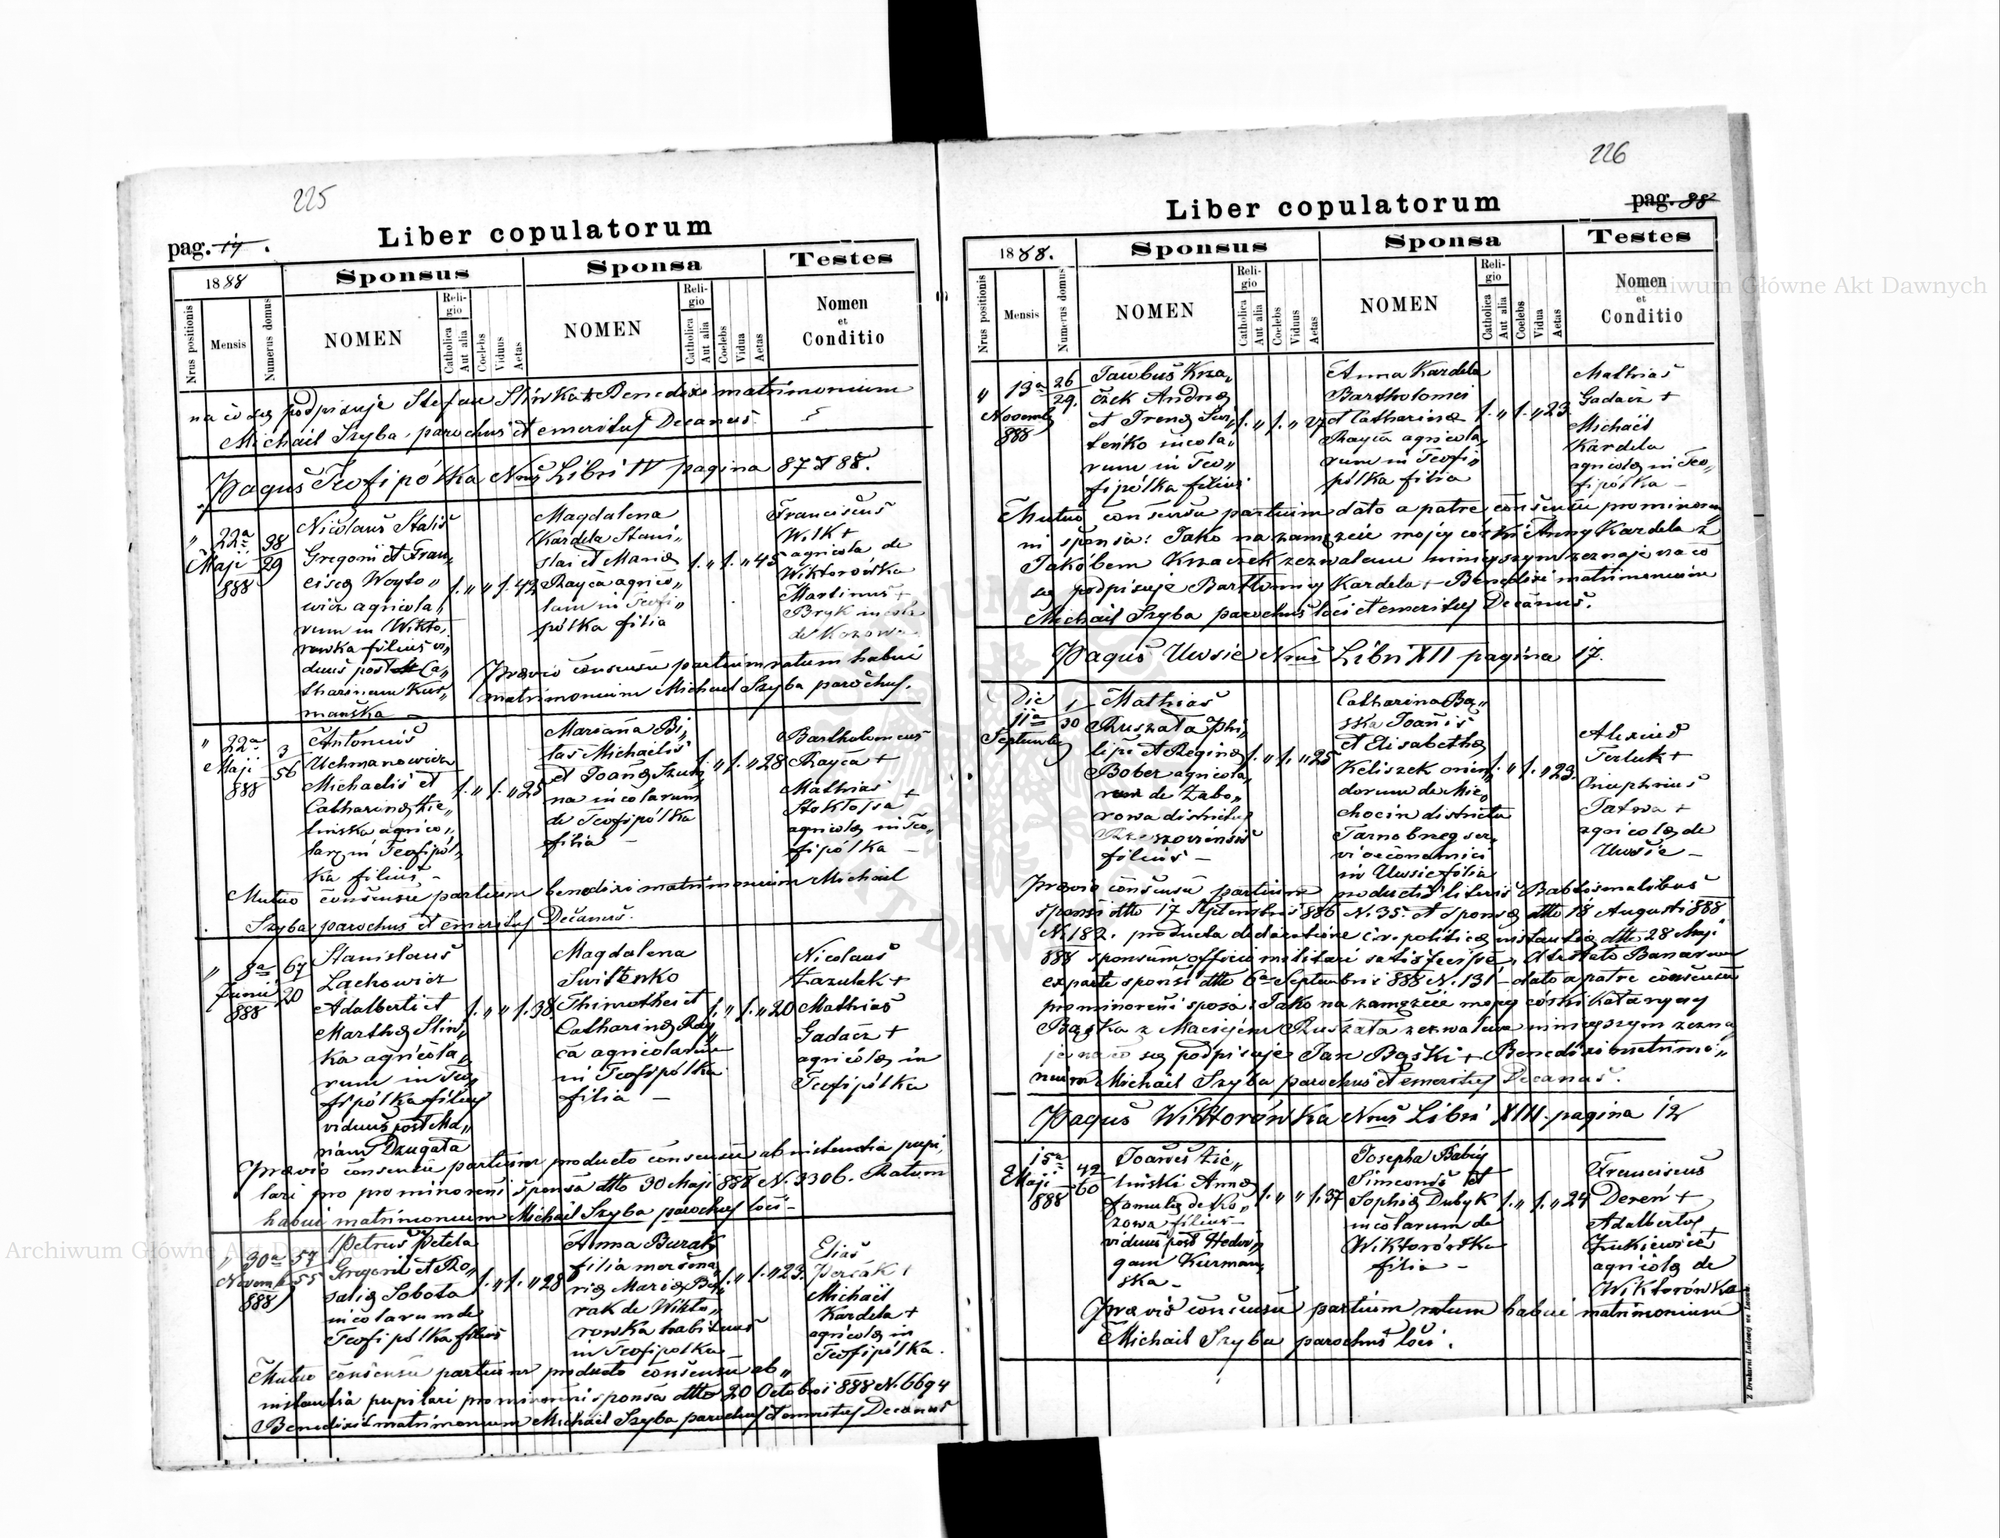 225
Liber copulatorum
pag. 17.
1888
Sponsus
Sponsa
Testes
Nrus positionis
Mensis
Numerus domus
NOMEN
Religio
Catholica
Aut alia
Coelebs
Viduus
Aetas
NOMEN
Religio
Catholica
Aut alia
Coelebs
Vidua
Aetas
Nomen
et
Conditio
na co się podpisuje Stefan Slivka + Benedixi matrimonium
Michail Szyba parochus et emeritus Decanus.
Pagus Teofipólka Nrus Libri IV pagina 87 & 88.
" 22a Maji 888
38
29
Nicolaus Stalis
Gregorii et Fran„
cisca Woyto„
wicz agricola„
rum in Wikto„
rowka filius vi„
duus post Ca„
tharinam Kur„
manska
1. " " 1. 42
Magdalena
Kardela Stani„
slai et Maria
Rayca agrico„
larum in Teofi„
pólka filia
1. " 1. " 45
Franciscus
Wilk +
agricola de
Wiktorówka
Martinus +
Bryk incola
de Kozowa
Praevio consensu partium ratum habui
matrimonium Michael Szyba parochus.
" 22a Maji 888
3
56
Antonius
Uchmanowicz
Michaelis et
Catharina Zie„
linska agrico„
lar. in Teofipól„
ka filius
1. " 1. " 25
Marianna Bi„
las Michaelis
et Joanna
na incolarum
de Teofipólka
filia
1. " 1. " 28
Bartholomeus
Rayca +
Mathias
Stoklosa +
agricolae in Teo„
fipólka
Mutuo consensu partium benedixi matrimonium Michail
Szyba parochus et emeritus Decanus.
" 8a Junii 888
67
20
Stanislaus
Lachowicz
Adalberti et
Martha Slin„
ka agricola„
rum in Teo„
fipólka filius
viduus post Ma„
riam Dzugata
1. " " 1. 38.
Magdalena
Switenko
Thimothei et
Catharina Ray„
ca agricolarum
in Teofipólka
filia
1. " 1. " 20
Nicolaus
Zazulak +
Mathias
Gadacz +
agricolae in
Teofipólka
Praevio consensu partium producto consensu ab instantia pupi„
lari pro prominorenni sponsa dtto 30 Maji 888 N. 3306. Ratum
habui matrimonium Michail Szyba parochus loci
" 30a Novemb. 888
57
55
Petrus Petela
Gregorii et Ro„
salia Sobota
incolarum de
Teofipólka filius
1. " 1. " 28
Anna Burak
filia
Maria Bu„
rak de Wikto„
rowka habitans
in Teofipolka
1. " 1. " 23.
Elias
Perčak +
Michail
Kardela +
agricolae in
Teofipólka.
Mutuo consensu partium producto consensu ab„
instantia pupilari prominorenni sponsa dtto 20 Octobris 888 N. 6694
Benedixi matrimonium Michail Szyba parochus et emeritus Decanus
226
Liber copulatorum
pag. 88
1888.
Sponsus
Sponsa
Testes
Nrus positionis
Mensis
Numerus domus
NOMEN
Religio
Catholica
Aut alia
Coelebs
Viduus
Aetas
NOMEN
Religio
Catholica
Aut alia
Coelebs
Vidua
Aetas
Nomen
et
Conditio
" 13a Novemb. 888
26
29.
Jacobus Kna„
czek Andrea
et Irena Swi„
tenko incola„
rum in Teo„
fipólka filius
1. " 1. " 27
Anna Kardela
Bartholomei
et Catharina
Rayca agricola„
rum in Teofi„
pólka filia
1. " 1. " 23.
Mathias
Gadacz +
Michail
Kardela
agricolae in Teo„
fipólka
Mutuo consensu partium dato a patre consensu prominoren
ni sponsa: Jako na zamęźcie mojej córki Anny Kardela z
Jakóbem Knaczek zezwalam niniejszym zeznaję na co
się podpisuje Bartłomiej Kardela + Benedixi matrimonium
Michail Szyba parochus loci et emeritus Decanus.
Pagus Uwsie Nrus Libri XII pagina 17.
Die 11a Septembr.
1
30
Mathias
Ruszata Phi„
lipi et Regina
Bober agricola„
rum de Zabo„
rowa districtus
Rzeszoviensis
filius
1. " 1. " 25
Catharina Bą„
ska Joanis
et Elisabetha
Keliszek orien„
dorum de Mie„
chocin districtu
Tarnobrzeg ser„
vi oeconomici
in Uwsie filia
1. " 1. " 23.
Alexius
Terluk +
Onuphrius
Tatwa +
agricolae de
Uwsie
Praevio consensu partium productis literis Babtismalibus
sponsi dtto 17 Septembris 886 N. 35. et sponsa dtto 18 Augusti 888
N. 182. producta declaratione c.r. politica instantia dtto 28 Maji
888 sponsum officio militari satisfecisse, Atestato Banorum
exparte sponsi dtto 6a Septembris 888 N. 131 dato a patre consensu
prominorenni sposa: Jako na zamęźcie mojej córki Katarzyny
Bąska z Maciejem Ruszata zezwalam niniejszym zezna
je na co się podpisuje Jan Bąski + Benedixi matrimo„
nium Michail Szyba parochus et emeritus Decanus.
Pagus Wiktorówka Nrus Libri XIII pagina 12
15a Maji 888
42
60
Joanes Zie„
linski Anna
famula de Ko„
zowa filius
viduus post Hedwi„
gam Kurman„
ska
1. " " 1. 37
Josepha Babij
Simeonis et
Sophia Dubyk
incolarum de
Wiktorówka
filia
1. " 1. " 24
Franciscus
Dereń +
Adalbertus +
Zukiewicz
agricolae de
Wiktorówka
Praevio consensu partium ratum habui matrimonium
Michail Szyba parochus loci.
Z Drukarni Ludowej we Lwowie.
Archiwum Główne Akt Dawnych
Archiwum Główne Akt Dawnych